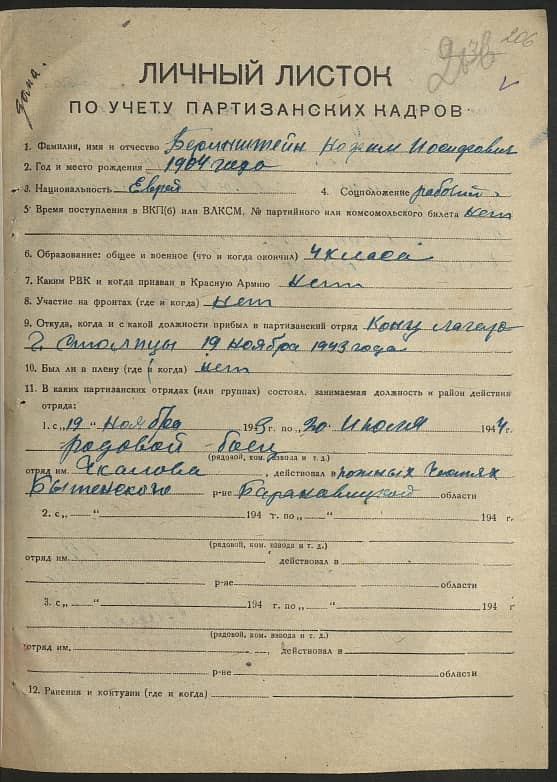 206
ЛИЧНЫЙ ЛИСТОК
ПО УЧЕТУ ПАРТИЗАНСКИХ КАДРОВ
1. Фамилия, имя и отчество Бернштейн Нохим Иосифович
2. Год и место рождения 1904 года
3. Национальность Еврей 4. Соцположение рабочий
5. Время поступления в ВКП(б) или ВЛКСМ, № партийного или комсомольского билета нет
6. Образование: общее и военное (что и когда окончил) 4 класса
7. Каким РВК и когда призван в Красную Армию нет
8. Участие на фронтах (где и когда) нет
9. Откуда, когда и с какой должности прибыл в партизанский отряд Конц лагерь
г. Столпцы 19 ноября 1943 года
10. Был ли в плену (где и когда) нет
11. В каких партизанских отрядах (или группах) состоял, занимаемая должность и район действия
отряда:
1. с „19“ ноября 1943 г. по „20“ Июля 1944 г.
рядовой боец
(рядовой, ком. взвода и т. д.)
отряд им. Чкалова, действовал в южных частях
Бытенского р-не Барановицкой области
2. с „ “ 194 г. по „ “ 194 г.
(рядовой, ком. взвода и т. д.)
отряд им. действовал в
р-не области
3. с „ “ 194 г. по „ “ 194 г
(рядовой, ком. взвода и т. д.)
отряд им. , действовал в
р-не области
12. Ранения и контузии (где и когда)